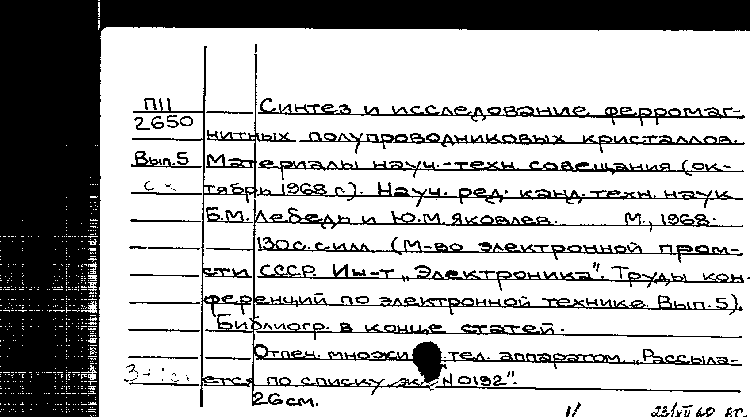 П11
2650
Вып.5
Синтез и исследование ферромаг-
нитных полупроводниковых кристаллов.
Материалы науч.-техн. совещания (ок-
тябрь 1968 г.). Науч. ред. канд. техн. наук
Б.М. Лебедь и Ю.М. Яковлев. М., 1968.
130 с. с илл. (М-во электронной пром-
сти СССР. Ин-т „Электроника". Труды кон-
ференций по электронной технике. Вып. 5).
Библиогр. в конце статей.
Отпеч. множи тел. аппаратом. „Рассыла-
ется по списку N 0192".
26 см.
1/